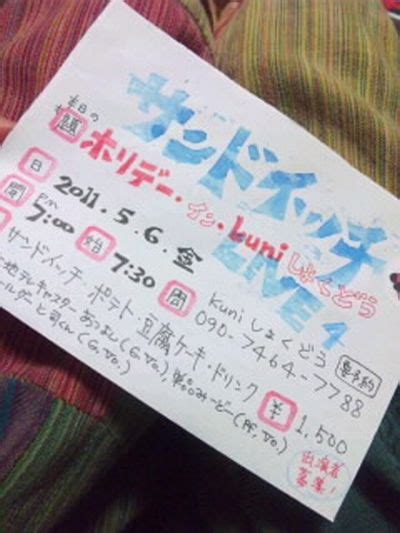 サンドイッチ
LIVE 4
本日の
題 ホリデー・イン・kuniしょくどう
日 2011.5.6.金
開 PM 7:00 始 7:30 問 kuniしょくどう
090-7464-7788 要予約
サンドイッチ・ポテト・豆腐ケーキ・ドリンク ¥ 1,500
出演者
募集!